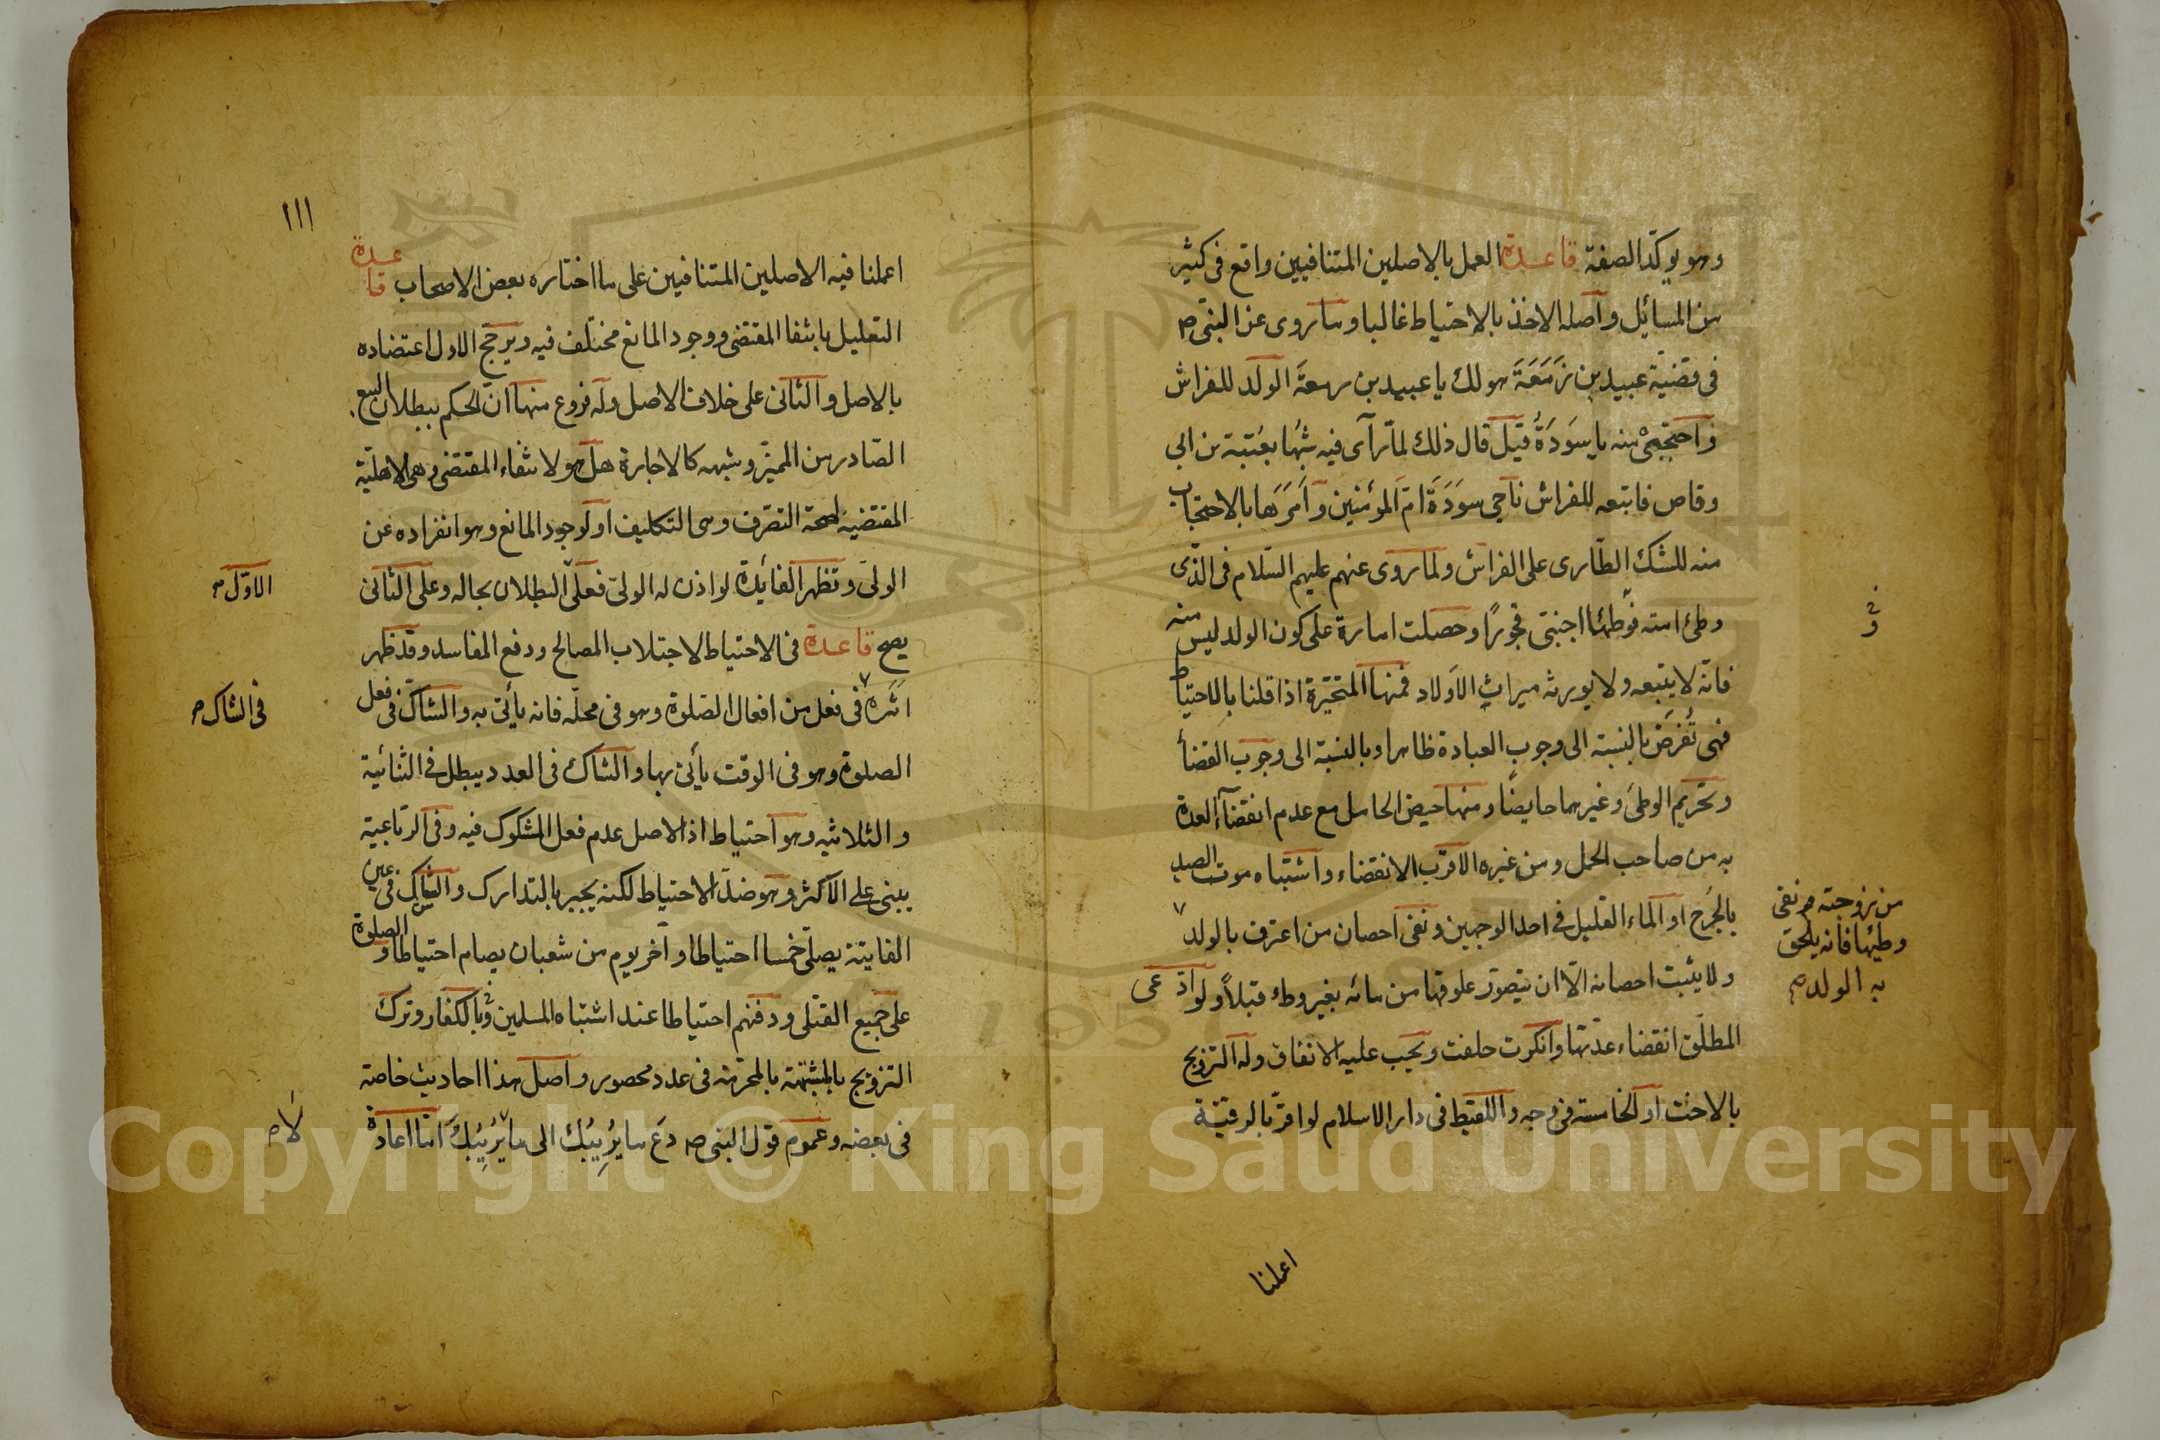 وهو يوكّد الصفة قاعدة العمل بالاصلين المتنافيين واقع فى كثير
من المسائل وأصله الاخذ بالاحتياط غالبا وما روى عن النبى ص
فى قضيّة عبيد بن زَمَعَة هو لك يا عبيد بن زمعة الولد للفراش
واحتجبى منه يا سَودَةُ قيل قال ذلك لما رآى فيه شبهًا بعُتبة بن ابى
وقاص فاتبعه للفراش ناجى سَودَة امّ المؤمنين وأَمَرَها بالاحتجاب
منه للشك الطّارى على الفراش ولما روى عنهم عليهم السّلام فى الذّى
وطئ امته فوطئها اجنبى فجورًا وحصلت امارة على كون الولد ليس منه
فانّه لا يتبعه ولا يورثه ميراث الاولاد فمنها المتحيّرة اذا قلنا بالاحتياط
فهى تُفرَض بالنسبة الى وجوب العبادة ظاهرا وبالنسبة الى وجوب القضأ
وتحريم الوطئ وغيرهما حايضًا ومنها حيض الحامل مع عدم انقضآء العدة
به من صاحب الحمل ومن غيره الاقرب الانقضاء واشتباه موت الصيد
بالجُرح او الماء القليل فى احد الوجهين ونفى احصان من اعترف بالولد
من زوجته ونفى
وطيها فانه يلحق
به الولد ص
ولا يثبت احصانه الّا ان يتصوّر علوقها من مائه بغير وطء قبلاً ولو ادّعى
المطلّق انقضاء عدّتها وانكرت حلفت ويجب عليه الانفاق وله التزويج
بالاخت او الخامسة فى وجه واللقيط فى دار الاسلام لو اقرّ بالرقيّة
اعملنا
١١١
اعملنا فيه الاصلين المتنافيين على ما اختاره بعض الاصحاب قاعدة
التعليل بانتفا المقتضى ووجود المانع مختلف فيه ويرجّح الاول اعتضاده
بالاصل والثانى على خلاف الاصل وله فروع منها انّ الحكم ببطلان البيع
الصّادر من المميّز وشبهه كالاجارة هل هو لانتفاء المقتضى وهى الاهليّة
المقتضية لصحة التصرّف وهى التكليف او لوجود المانع وهو انفراده عن
الولى وتظهر الفائدة لو اذن له الولىّ فعلى البطلان بحاله وعلى الثانى
الاوّل ص
يصح قاعدة فى الاحتياط لاجتلاب المصالح ودفع المفاسد وقد ظهر
اثره فى فعل من افعال الصّلوة وهو فى محلّه فانه يأتى به والشاكّ فى فعل
فى الشاك ص
الصلوة وهو فى الوقت يأتى بها والشّاك فى العدد يبطل فى الثنائية
والثلاثيه وهو احتياط اذ الاصل عدم فعل المشكوك فيه وفى الرباعية
يبنى على الاكثر وهو ضدّ الاحتياط لكنه يجبر بالتدارك والشاك فى عين
الفايتة يصلّى خمسا احتياطا وآخر يوم من شعبان يصام احتياطا والصلوة
على جميع القتلى ودفنهم احتياطا عند اشتباه المسلمين بالكفار وترك
التزويج بالمشتبهة بالمحرّمة فى عدد محصور واصل هذا احاديث خاصة
فى بعضه وعموم قول النبى ص دَع ما يُرِيبُك الى ما لا يُرِيبُكَ امّا اعادة
لا ص